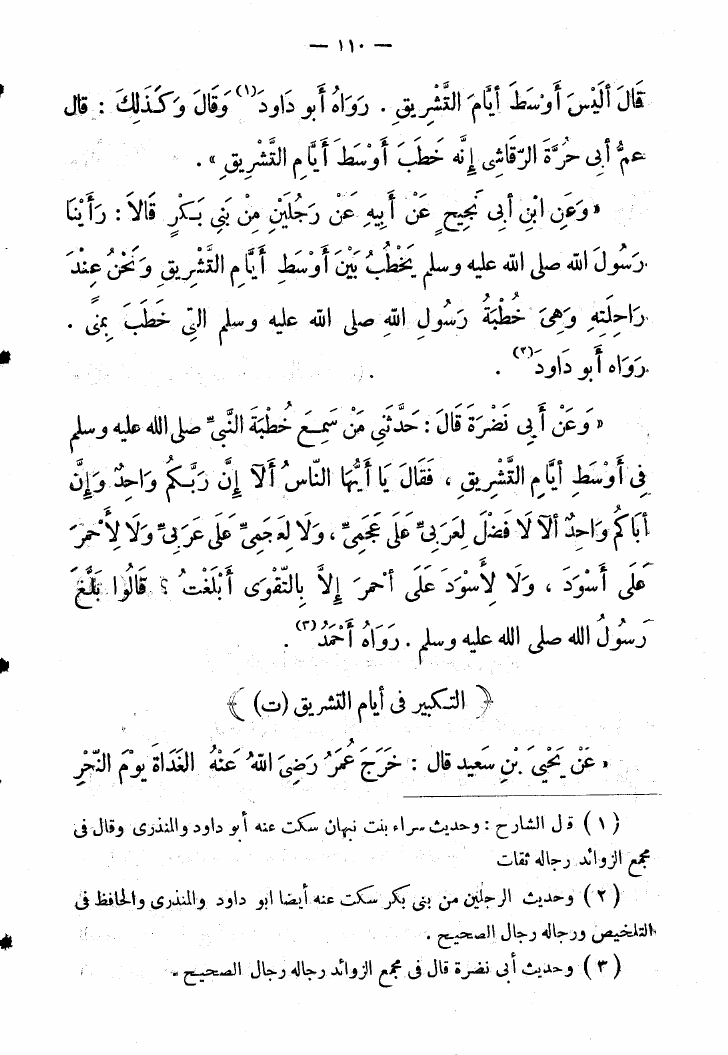 — ١١٠ —
قَالَ أَلَيْسَ أَوْسَطَ أَيَّامَ التَّشْرِيقِ . رَوَاهُ أَبو دَاودَ (١) وَقَالَ وَكَذَلِكَ : قال
عمُّ أبى حُرَّةَ الرّقاشِى إِنَّه خَطَبَ أَوْسَطَ أَيَّامِ التَّشْرِيقِ » .
« وَعَنِ ابْنِ أَبى نَجِيحٍ عَنْ أَبِيهِ عَنْ رَجُلَيْنِ مِنْ بَنِى بَكْرٍ قَالاَ : رَأَيْنَا
رَسُولَ الله صلى الله عليه وسلم يَخْطُبُ بَيْنَ أَوْسَطِ أَيَّامِ التَّشْرِيقِ وَنَحْنُ عِنْدَ
رَاحِلَتِهِ وَهِىَ خُطْبَةُ رَسُولِ اللهِ صلى الله عليه وسلم التِى خَطَبَ بِمنًى .
رَوَاه أَبو دَاودَ (٢) .
« وَعَنْ أَبِى نَضْرَةَ قَالَ : حَدَّثَنِى مَنْ سَمِعَ خُطْبَةَ النَّبِىّ صلى الله عليه وسلم
فِى أَوْسَطِ أَيَّامِ التَّشْرِيقِ ، فَقَالَ يَا أَيُّهَا النّاسُ أَلاَ إِنَّ رَبَّكُم وَاحِدٌ وَإِنَّ
أَبَاكُم وَاحِدٌ أَلاَ لَا فَضْلَ لِعَرَبِىّ عَلَى عَجَمِىّ ، وَلَا لِعَجَمِىّ عَلَى عَرَبِىّ وَلَا لِأَحْمَرَ
عَلَى أَسْوَدَ ، وَلَا لِأَسْوَدَ عَلَى أَحْمَرَ إِلاَّ بِالتَّقْوَى أَبَلَّغْتُ ؟ قَالُوا بَلَّغَ
رَسُولُ الله صلى الله عليه وسلم . رَوَاهُ أَحْمَدُ (٣) .
﴿ التكبير فى أيام التشريق (ت) ﴾
« عَنْ يَحْيَىَ بْنِ سَعِيد قال : خَرَجَ عُمَرُ رَضِىَ اللهُ عَنْهُ الغَدَاةَ يَوْمَ النّحْرِ
(١) قال الشارح : وحديث سراء بنت نبهان سكت عنه أبو داود والمنذرى وقال فى
مجمع الزوائد رجاله ثقات
(٢) وحديث الرجلين من بنى بكر سكت عنه أيضا ابو داود والمنذرى والحافظ فى
التلخيص ورجاله رجال الصحيح .
(٣) وحديث أبى نضرة قال فى مجمع الزوائد رجاله رجال الصحيح .